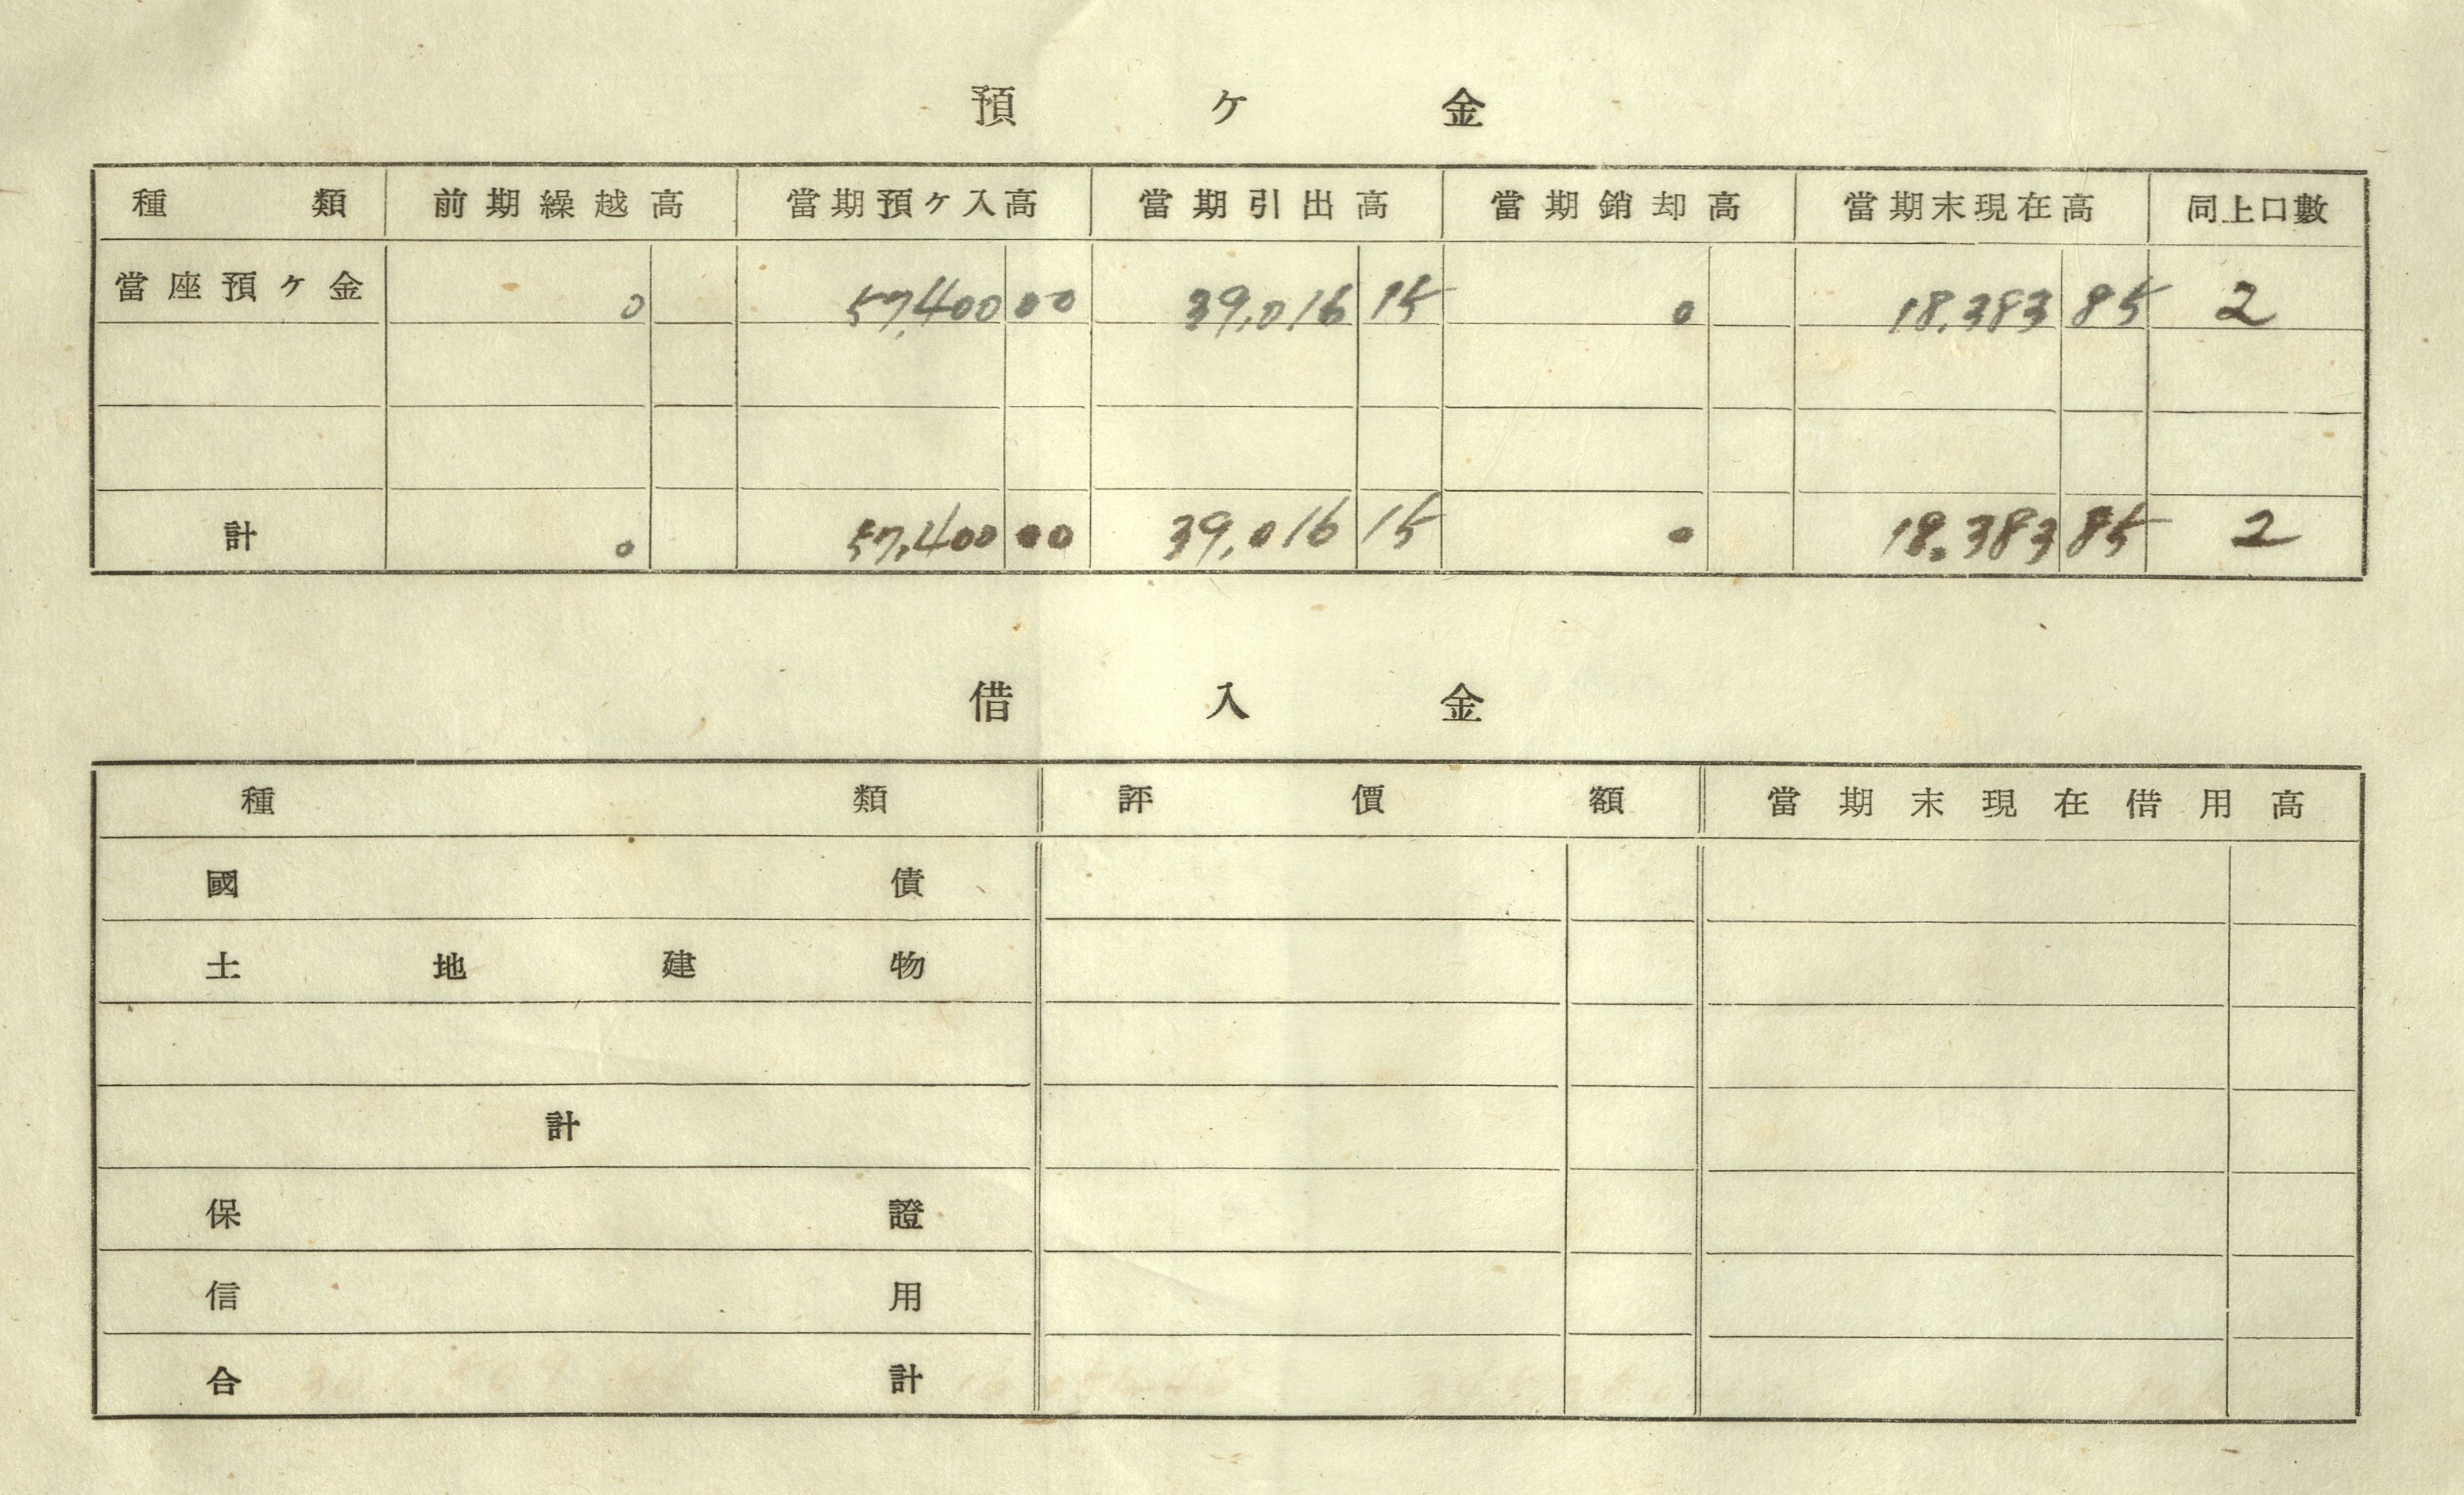 預ケ金
種類 前期繰越高 當期預ケ入高 當期引出高 當期銷却高 當期末現在高 同上口數
當座預ケ金 0 57,400 00 39,016 15 0 18,383 85 2
計 0 57,400 00 39,016 15 0 18,383 85 2
借入金
種類 評價額 當期末現在借用高
國債
土地建物
計
保證
信用
合計